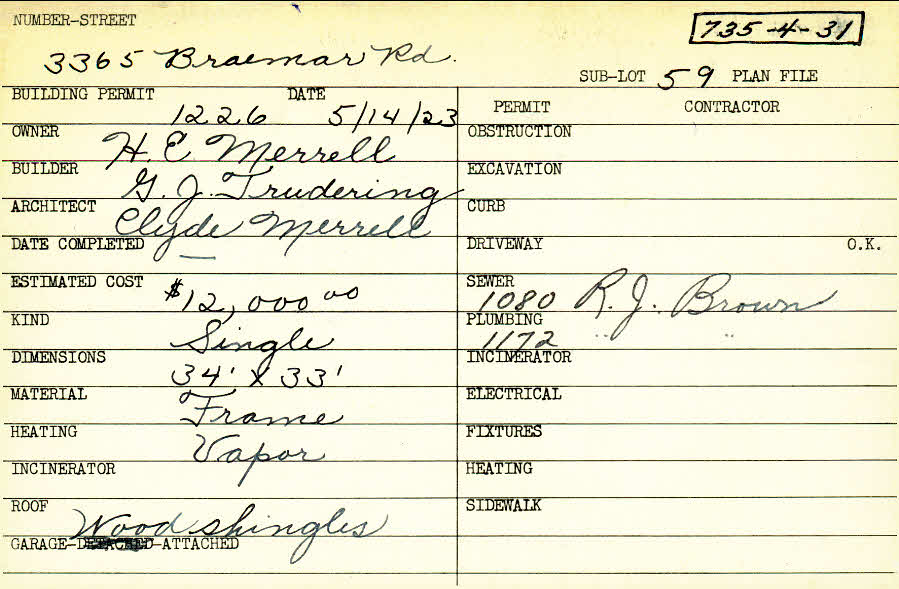 NUMBER-STREET
735-4-31
3365 Braemar Rd.
SUB-LOT 59 PLAN FILE
BUILDING PERMIT 1226 DATE 5/14/23
PERMIT CONTRACTOR
OWNER H. E. Merrell
OBSTRUCTION
BUILDER G. J. Trudering
EXCAVATION
ARCHITECT Clyde Merrell
CURB
DATE COMPLETED —
DRIVEWAY O.K.
ESTIMATED COST $12,000 00
SEWER 1080 R. J. Brown
KIND Single
PLUMBING 1172 " "
DIMENSIONS 34' X 33'
INCINERATOR
MATERIAL Frame
ELECTRICAL
HEATING Vapor
FIXTURES
INCINERATOR
HEATING
ROOF Wood shingles
SIDEWALK
GARAGE-DETACHED-ATTACHED